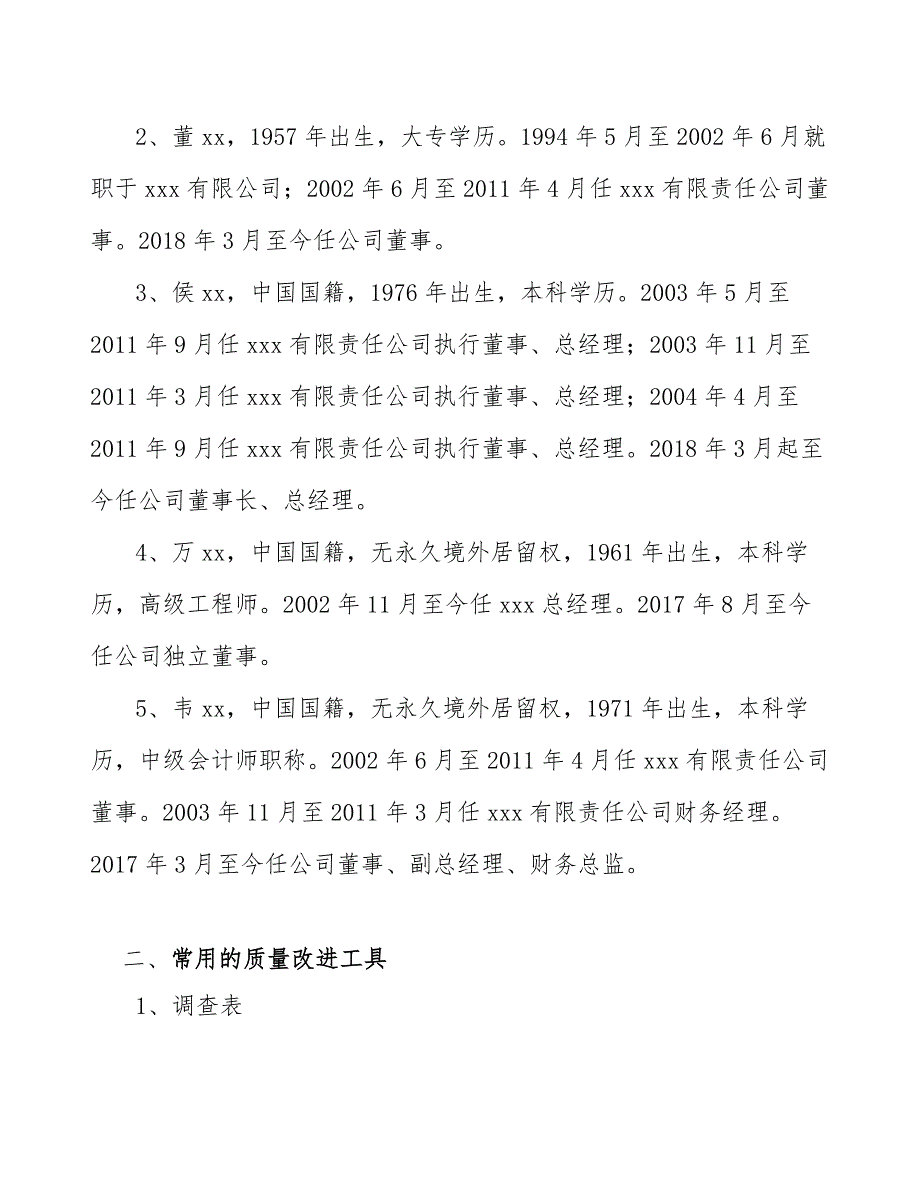 2、董 xx，1957 年出生，大专学历。1994 年 5 月至 2002 年 6 月就
职于 xxx 有限公司；2002 年 6 月至 2011 年 4 月任 xxx 有限责任公司董
事。2018 年 3 月至今任公司董事。
3、侯 xx，中国国籍，1976 年出生，本科学历。2003 年 5 月至
2011 年 9 月任 xxx 有限责任公司执行董事、总经理；2003 年 11 月至
2011 年 3 月任 xxx 有限责任公司执行董事、总经理；2004 年 4 月至
2011 年 9 月任 xxx 有限责任公司执行董事、总经理。2018 年 3 月起至
今任公司董事长、总经理。
4、万 xx，中国国籍，无永久境外居留权，1961 年出生，本科学
历，高级工程师。2002 年 11 月至今任 xxx 总经理。2017 年 8 月至今
任公司独立董事。
5、韦 xx，中国国籍，无永久境外居留权，1971 年出生，本科学
历，中级会计师职称。2002 年 6 月至 2011 年 4 月任 xxx 有限责任公司
董事。2003 年 11 月至 2011 年 3 月任 xxx 有限责任公司财务经理。
2017 年 3 月至今任公司董事、副总经理、财务总监。
二、常用的质量改进工具
1、调查表